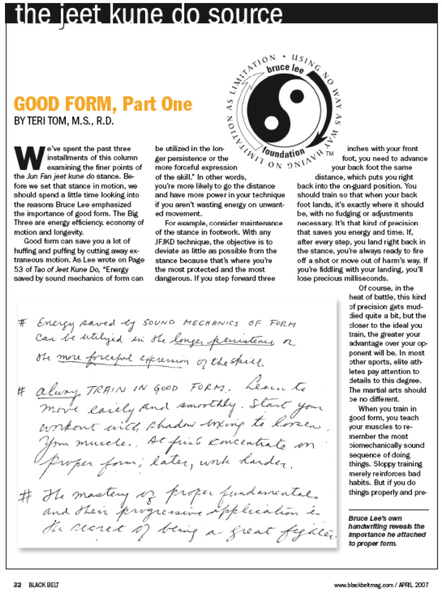 the jeet kune do source
GOOD FORM, Part One
BY TERI TOM, M.S., R.D.
USING NO WAY AS WAY • HAVING NO LIMITATION AS LIMITATION •
bruce lee
foundation
TM
We've spent the past three
installments of this column
examining the finer points of
the Jun Fan jeet kune do stance. Be-
fore we set that stance in motion, we
should spend a little time looking into
the reasons Bruce Lee emphasized
the importance of good form. The Big
Three are energy efficiency, economy of
motion and longevity.
Good form can save you a lot of
huffing and puffing by cutting away ex-
traneous motion. As Lee wrote on Page
53 of Tao of Jeet Kune Do, "Energy
saved by sound mechanics of form can
be utilized in the lon-
ger persistence or the
more forceful expression
of the skill." In other words,
you're more likely to go the distance
and have more power in your technique
if you aren't wasting energy on unwant-
ed movement.
For example, consider maintenance
of the stance in footwork. With any
JFJKD technique, the objective is to
deviate as little as possible from the
stance because that's where you're
the most protected and the most
dangerous. If you step forward three
inches with your front
foot, you need to advance
your back foot the same
distance, which puts you right
back into the on-guard position. You
should train so that when your back
foot lands, it's exactly where it should
be, with no fudging or adjustments
necessary. It's that kind of precision
that saves you energy and time. If,
after every step, you land right back in
the stance, you're always ready to fire
off a shot or move out of harm's way. If
you're fiddling with your landing, you'll
lose precious milliseconds.
Of course, in the
heat of battle, this kind
of precision gets mud-
died quite a bit, but the
closer to the ideal you
train, the greater your
advantage over your op-
ponent will be. In most
other sports, elite ath-
letes pay attention to
details to this degree.
The martial arts should
be no different.
When you train in
good form, you teach
your muscles to re-
member the most
biomechanically sound
sequence of doing
things. Sloppy training
merely reinforces bad
habits. But if you do
things properly and pre-
# Energy saved by SOUND MECHANICS OF FORM
can be utilized in the longer persistence or
the more forceful expression of the skill.
# always TRAIN IN GOOD FORM. Learn to
move easily and smoothly. Start your
workout with shadow boxing to loosen
your muscles. At first concentrate on
proper form; later, work harder.
# The mastery of proper fundamentals
and their progressive application is
the secret of being a great fighter
Bruce Lee's own
handwriting reveals the
importance he attached
to proper form.
32 BLACK BELT
www.blackbeltmag.com / APRIL 2007